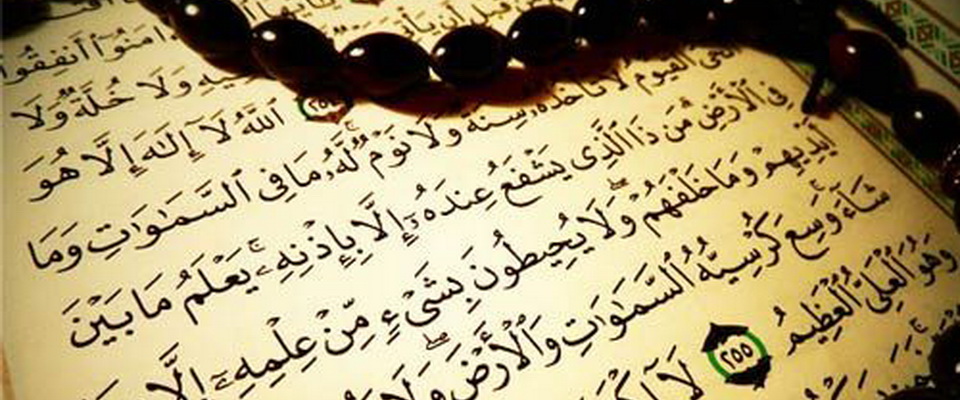 ءَامَنُوٓا۟ أَنفِقُوا۟
قَبْلِ أَن يَأْتِىَ فِيهِ وَلَا خُلَّةٌ وَلَا
٢٥٤ ٱللَّهُ لَآ إِلَٰهَ إِلَّا هُوَ
ٱلْحَىُّ ٱلْقَيُّومُ لَا تَأْخُذُهُۥ سِنَةٌ وَلَا نَوْمٌ ۚ لَّهُۥ مَا فِى ٱلسَّمَٰوَٰتِ وَمَا
فِى ٱلْأَرْضِ ۗ مَن ذَا ٱلَّذِى يَشْفَعُ عِندَهُۥٓ إِلَّا بِإِذْنِهِۦ ۚ يَعْلَمُ مَا بَيْنَ
أَيْدِيهِمْ وَمَا خَلْفَهُمْ ۖ وَلَا يُحِيطُونَ بِشَىْءٍ مِّنْ عِلْمِهِۦٓ إِلَّا
شَآءَ ۚ وَسِعَ كُرْسِيُّهُ ٱلسَّمَٰوَٰتِ وَٱلْأَرْضَ ۖ وَلَا
وَهُوَ ٱلْعَلِىُّ ٱلْعَظِيمُ ٢٥٥ لَآ